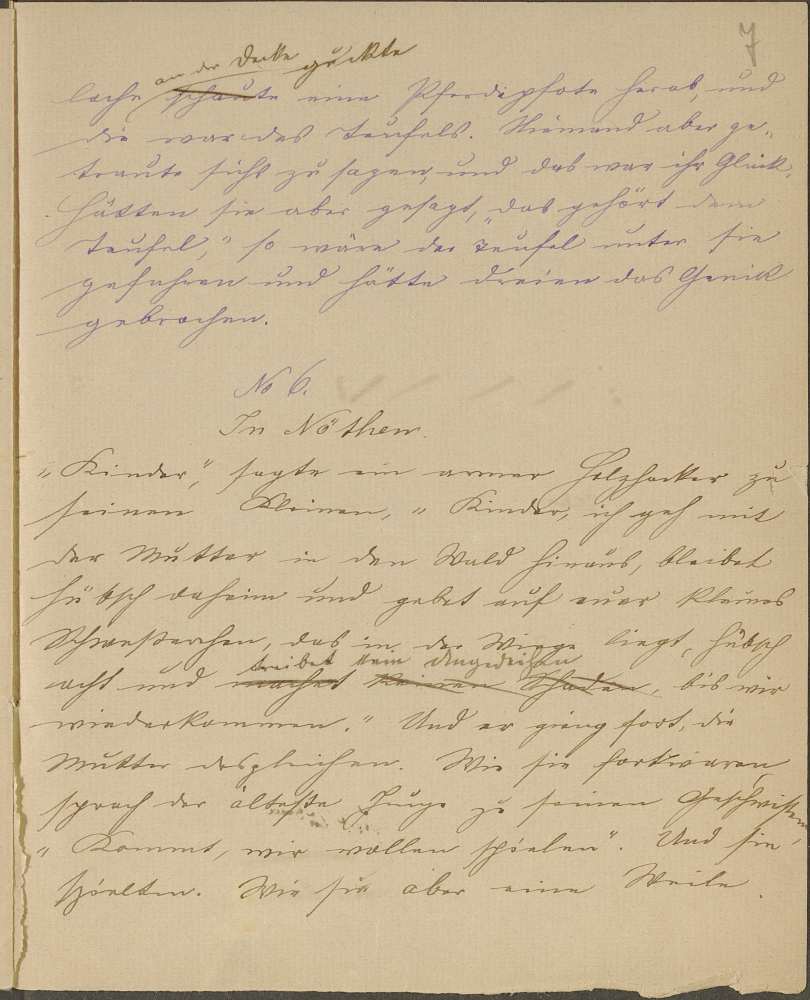 7
an der Decke guckte
loche schaute eine Pferdepfote herab, und
die war des Teufels. Niemand aber ge„
traute sichs zu sagen, und das war ihr Glück.
Hätten sie aber gesagt, „das gehört dem
Teufel,“ so wäre der Teufel unter sie
gefahren und hätte dreien das Genick
gebrochen.
No 6.
In Nöthen.
„Kinder,“ sagte ein armer Holzhacker zu
seinen Kleinen, „Kinder, ich geh mit
der Mutter in den Wald hinaus, bleibet
hübsch daheim und gebet auf euer kleines
Schwesterchen, das in der Wiege liegt, hübsch
treibet kein
acht und machet keinen Schaden, bis wir
wiederkommen.“ Und er gieng fort, die
Mutter desgleichen. Wie sie fort waren,
sprach der älteste Junge zu seinen Geschwistern,
„Kommt, wir wollen spielen“. Und sie
spielten. Wie sie aber eine Weile